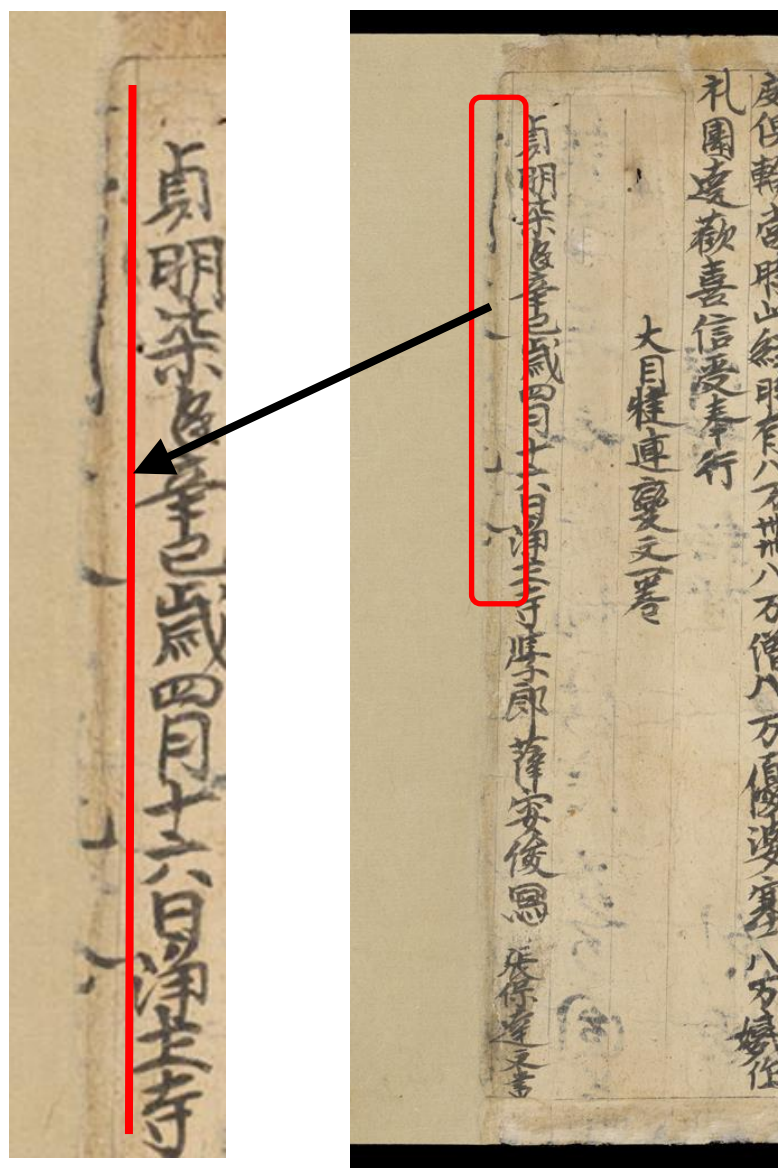 貞明柒年辛巳歲四月十六日淨土寺
度俱輪當時此經時有八万𦬇八万僧八万優婆塞八万姨作
礼圍遶歡喜信受奉行
大目犍連變文一卷
貞明柒年辛巳歲四月十六日淨土寺學郎薛安俊寫 張保達文書